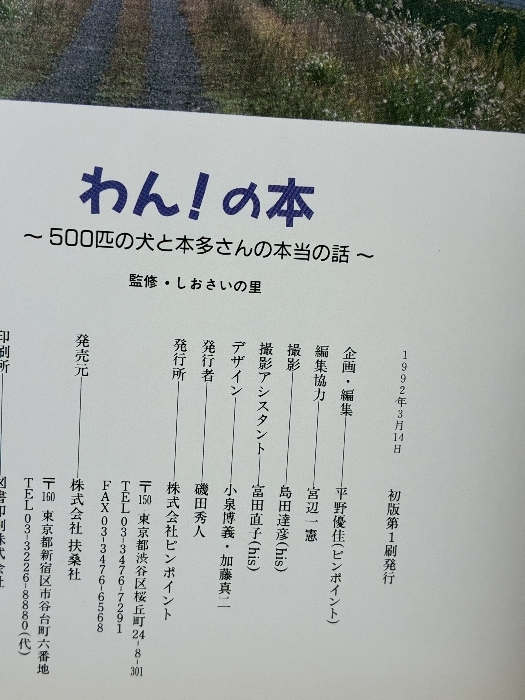 わん!の本
〜500匹の犬と本多さんの本当の話〜
監修・しおさいの里
1992年3月14日 初版第1刷発行
企画・編集 平野優佳(ピンポイント)
編集協力 宮辺一憲
撮影 島田達彦(his)
撮影アシスタント 富田直子(his)
デザイン 小泉博義・加藤真二
発行者 磯田秀人
発行所 株式会社ピンポイント
〒150 東京都渋谷区桜丘町24-8-301
TEL03-3476-7291
FAX03-3476-6568
発売元 株式会社 扶桑社
〒160 東京都新宿区市谷台町六番地
TEL03-3226-8880(代)
印刷所 図書印刷株式会社